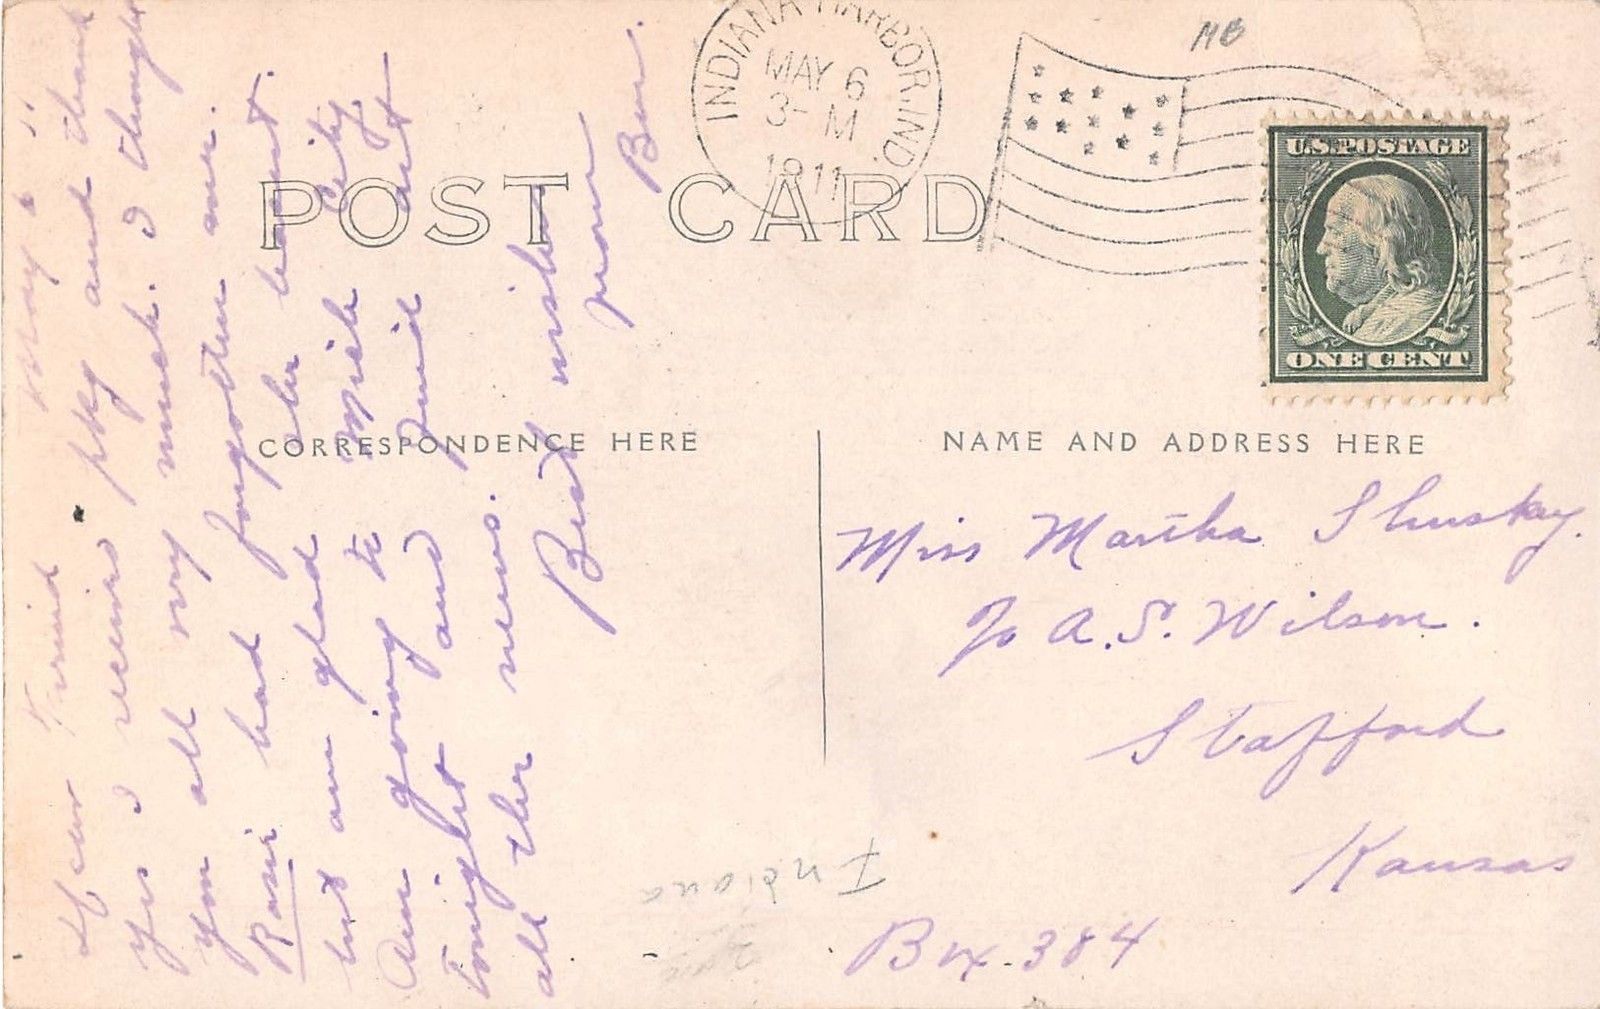 INDIANA HARBOR, IND.
MAY 6
3- M
1911
MB
U.S. POSTAGE
ONE CENT
POST CARD
CORRESPONDENCE HERE
NAME AND ADDRESS HERE
Dear Friend May 6 - 11
Yes I receive pkg and thank
you all very much. I thought
Rosie had forgotten me.
but am glad she haven't.
Am going to Mich City
tonight and find out
all the news.
Best wishes
from
Ben.
Miss Martha Shuskey.
℅ A. S. Wilson.
Stafford
Kansas
Box. 384
Indiana